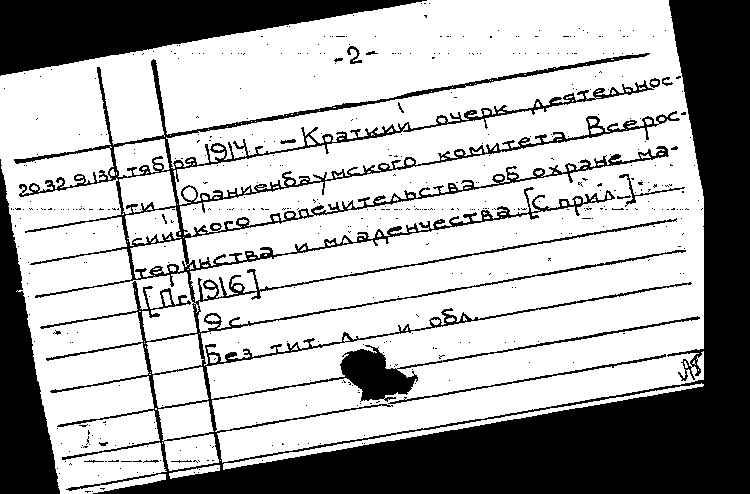 -2-
20.32.9.130 тября 1914 г. - Краткий очерк деятельнос-
ти Ораниенбаумского комитета Всерос-
сийского попечительства об охране ма-
теринства и младенчества [С прил.]
[Пг. 1916].
9 с.
Без тит. л. и обл.